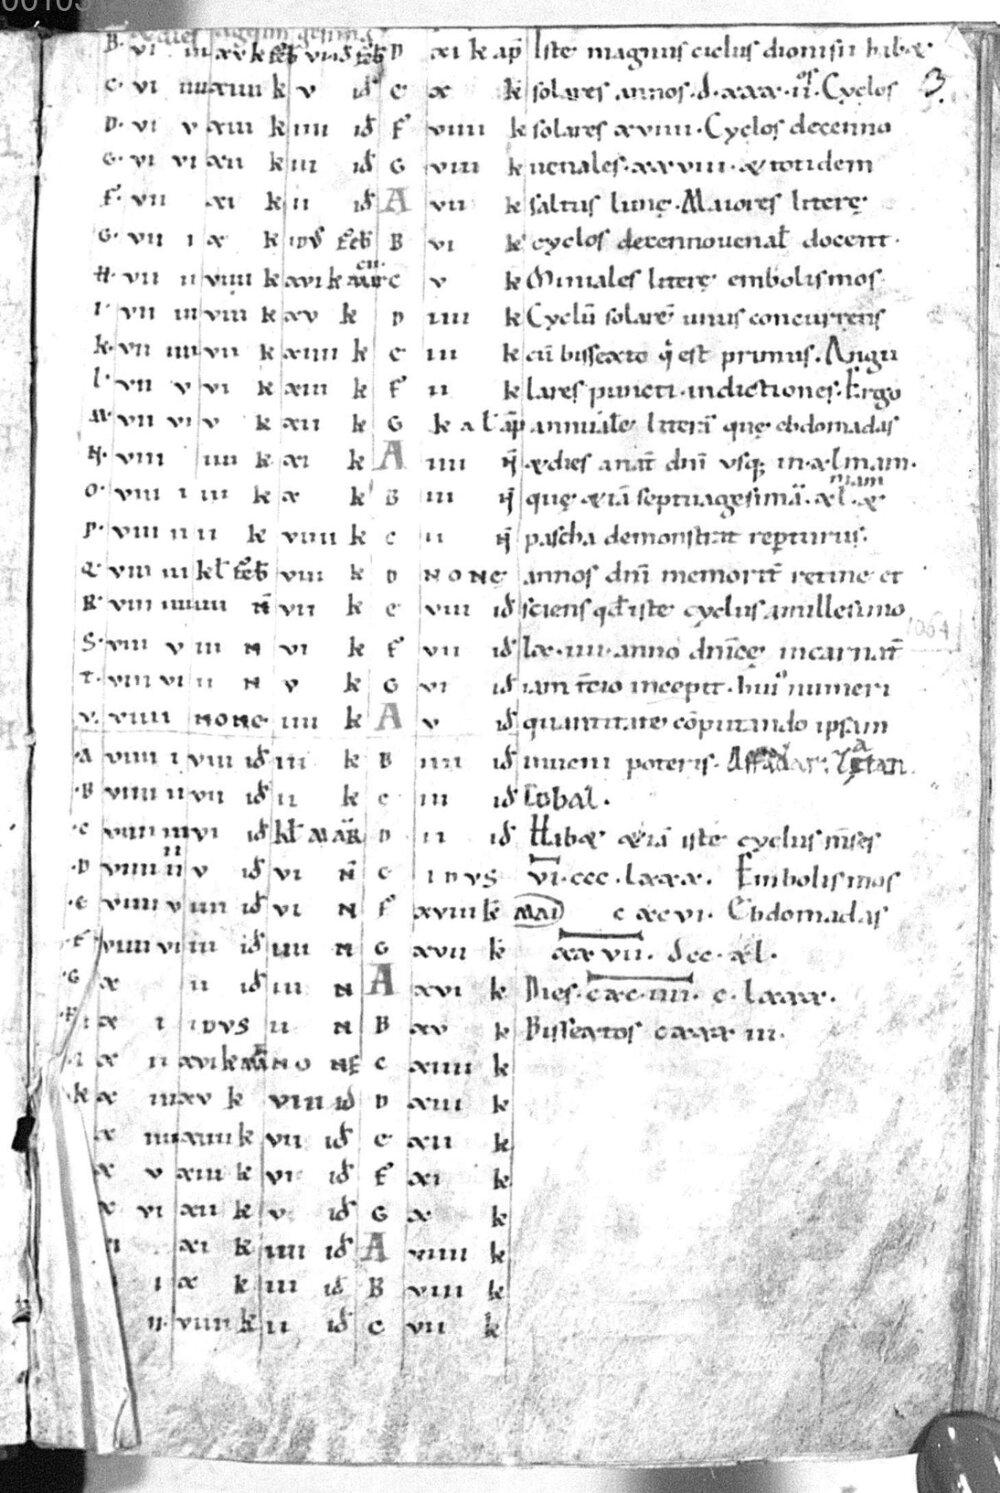 00103
B· vi iii xv k feb vi id feb D xi k ap̄ Iste magnus ciclus dionisii habæ
3
C· vi iiii xiiii k v id E x k solares annos · d · xxx · ii · Cyclos
D· vi v xiii k iiii id F viiii k solares xviiii · Cyclos decenno
G· vi vi xii k iii id G viii k uenales · xxviii · & totidem
F· vii xi k ii id A vii k saltus lunę · Maiores literę
G· vii i x k idus feb B vi k cyclos decennouenal docent ·
H· vii ii viiii k xvi k mar C v k Miniales literę embolismos ·
I· vii iii viii k xv k D iiii k Cyclū solarē unus concurrens
K· vii iiii vii k xiiii k E iii k cū bissexto q est primus · Angu
L· vii v vi k xiii k F ii k lares puncti · indictiones · Ergo
M· vii vi v k xii k G kal ap̄ annuale literis que ebdomadas
N· viii iiii k xi k A iiii n̄ & dies a nat dn̄i usq; in · xlmam ·
O· viii i iii k x k B iii n̄ quę & iā septuagesimā · xlmam · &
P· viii ii ii k viiii k C ii n̄ pascha demonstrat repturus ·
Q· viii iii kl feb viii k D NONE annos dn̄i memorit retine et
R· viii iiii iiii n̄ vii k E viii id sciens qd iste cyclus a millesimo
S· viii v iii N vi k F vii id lx · iiii · anno dnicę incarnat
1064
T· viii vi ii N v k G vi id iam tcio incepit · hui numeri
V· viiii NONE iiii k A v id quantitate cōputando ipsam
·A viiii i viii id iii k B iiii id inueni poteris ·
·B viiii ii vii id ii k C iii id Cobal ·
·C viiii iii vi id kl MAR D ii id Habæ &iā iste cyclus m̄ses
·D viiii iiii v id vi N̄ E IDVS vi · ccc · lxxx · Embolismos
·E viiii v iiii id vi N F xviii k MAI c xcvi · Ebdomadas
·F viiii vi iii id iiii N G xvii k xxvii · dcc · xl ·
·G x ii id iii N A xvi k Dies · cxc · iiii · c · lxxx ·
i x i IDVS ii N B xv k Bissextos cxxx iii ·
x ii xvi k NONE C xiiii k
·K x iii xv k viii id D xiii k
x iiii xiiii k vii id E xii k
x v xiii k vi id F xi k
x vi xii k v id G x k
xi k iiii id A viiii k
i x k iii id B viii k
ii viiii k ii id C vii k